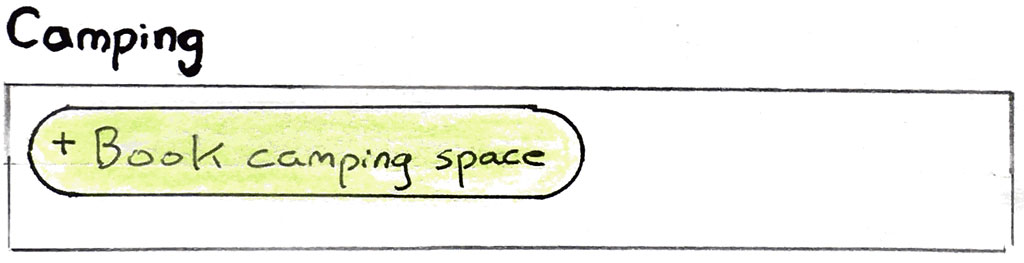 Camping
+ Book camping space